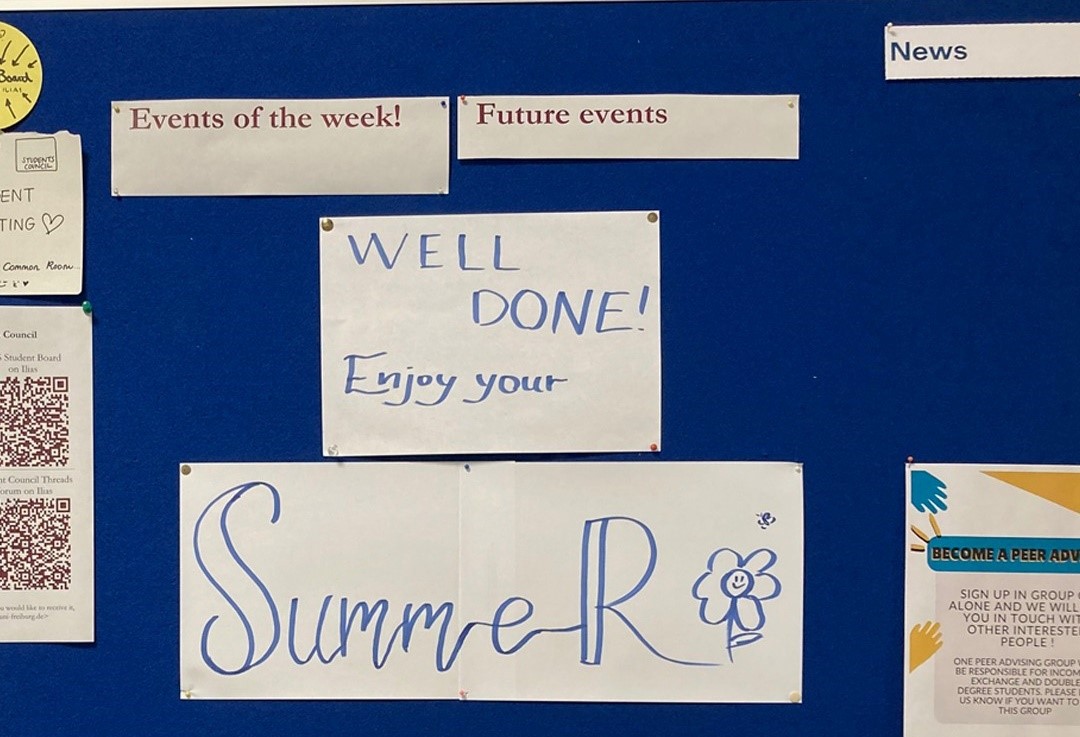 Board
ILIAS
STUDENTS
COUNCIL
ENT
TING ♡
Common Room...
Council
Student Board
on Ilias
nt Council Threads
orum on Ilias
ou would like to receive it,
uni-freiburg.de>
Events of the week!
Future events
WELL
DONE!
Enjoy your
SummeR
News
BECOME A PEER ADV
SIGN UP IN GROUP
ALONE AND WE WILL
YOU IN TOUCH WIT
OTHER INTERESTE
PEOPLE !
ONE PEER ADVISING GROUP
BE RESPONSIBLE FOR INCOM
EXCHANGE AND DOUBLE
DEGREE STUDENTS. PLEASE
US KNOW IF YOU WANT TO
THIS GROUP